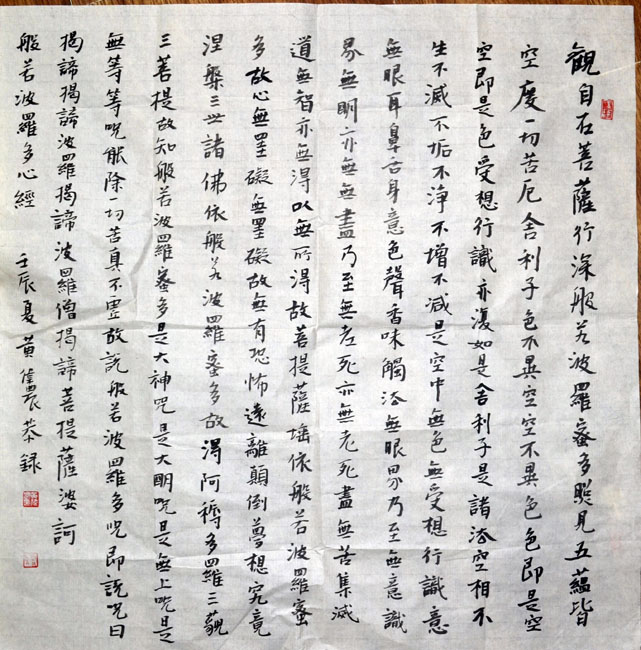 觀自在菩薩行深般若波羅蜜多照見五蘊皆
空度一切苦厄舍利子色不異空空不異色色即是空
空即是色受想行識亦復如是舍利子是諸法空相不
生不滅不垢不淨不增不減是空中無色無受想行識意
無眼耳鼻舌身意色聲香味觸法無眼界乃至無意識
界無明亦無無盡乃至無老死亦無老死盡無苦集滅
道無智亦無得以無所得故菩提薩埵依般若波羅蜜
多故心無罣礙無罣礙故無有恐怖遠離顛倒夢想究竟
涅槃三世諸佛依般若波羅蜜多故得阿耨多羅三藐
三菩提故知般若波羅蜜多是大神咒是大明咒是無上咒是
無等等呪能除一切苦真不虛故説般若波羅多呪即説呪曰
揭諦揭諦波羅揭諦波羅僧揭諦菩提薩婆訶
般若波羅多心經 壬辰夏黃農恭録